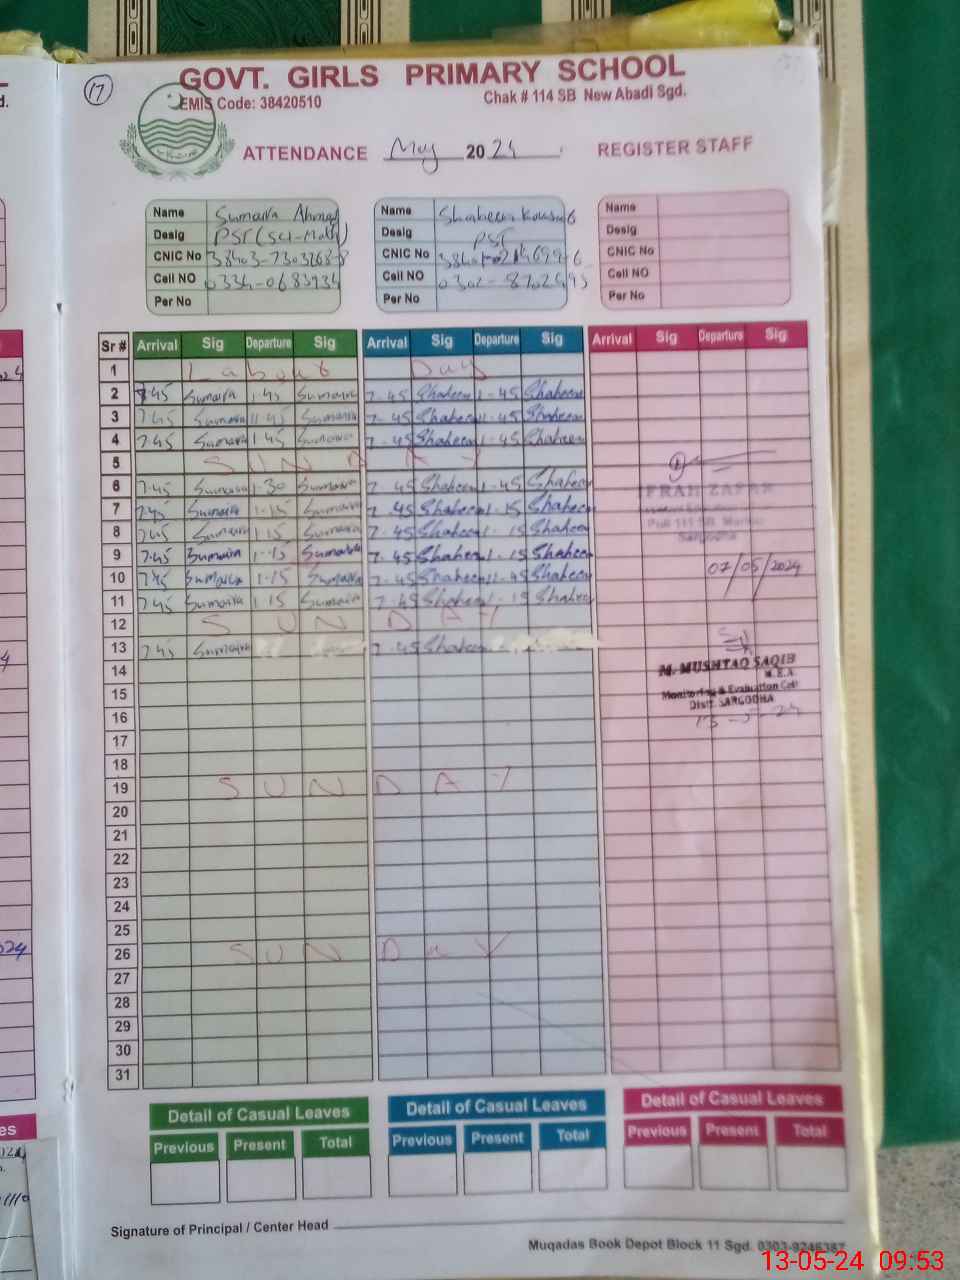 17
GOVT. GIRLS PRIMARY SCHOOL
EMIS Code: 38420510
Chak # 114 SB New Abadi Sgd.
ATTENDANCE May 2024 REGISTER STAFF
Name Sumaira Ahmad Name Shaheen Kousar Name
Desig PST (Sci-Math) Desig PST Desig
CNIC No CNIC No CNIC No
Cell NO 0334-0683934 Cell NO Cell NO
Per No Per No Per No
Sr # Arrival Sig Departure Sig Arrival Sig Departure Sig Arrival Sig Departure Sig
1 Labour Day
2 7.45 Sumaira 1.45 Sumaira 7.45 Shaheen 1.45 Shaheen
3 7.45 Sumaira 11.45 Sumaira 7.45 Shaheen 11.45 Shaheen
4 7.45 Sumaira 1.45 Sumaira 7.45 Shaheen 1.45 Shaheen
5 SUNDAY
6 7.45 Sumaira 1.30 Sumaira 7.45 Shaheen 1.45 Shaheen
7 7.45 Sumaira 1.15 Sumaira 7.45 Shaheen 1.15 Shaheen
8 7.45 Sumaira 1.15 Sumaira 7.45 Shaheen 1.15 Shaheen
9 7.45 Sumaira 1.15 Sumaira 7.45 Shaheen 1.15 Shaheen
07/05/2024
10 7.45 Sumaira 1.15 Sumaira 7.45 Shaheen 11.45 Shaheen
11 7.45 Sumaira 1.15 Sumaira 7.45 Shaheen 1.15 Shaheen
12 SUNDAY
13 7.45 Sumaira 7.45 Shaheen
M. MUSHTAQ SAQIB
M.E.A
14
Monitoring & Evaluation Cell
15
Distt. SARGODHA
16
13-5-24
17
18
19 SUNDAY
20
21
22
23
24
25
26 SUNDAY
27
28
29
30
31
Detail of Casual Leaves Detail of Casual Leaves Detail of Casual Leaves
Previous Present Total Previous Present Total Previous Present Total
Signature of Principal / Center Head
Muqadas Book Depot Block 11 Sgd.
13-05-24 09:53